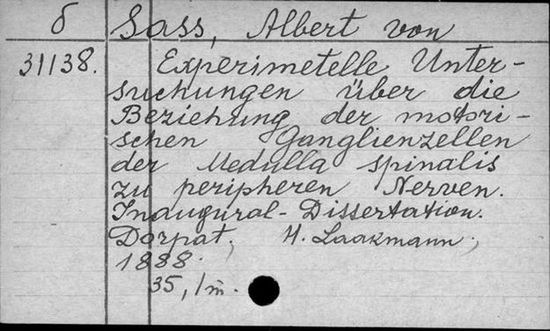 δ Sass, Albert von
31138. Experimetelle Unter-
suchungen über die
Beziehung der motori-
schen Ganglienzellen
der Medulla spinalis
zu peripheren Nerven.
Inaugural-Dissertation.
Dorpat. H. Laakmann,
1888.
35, 1 m.